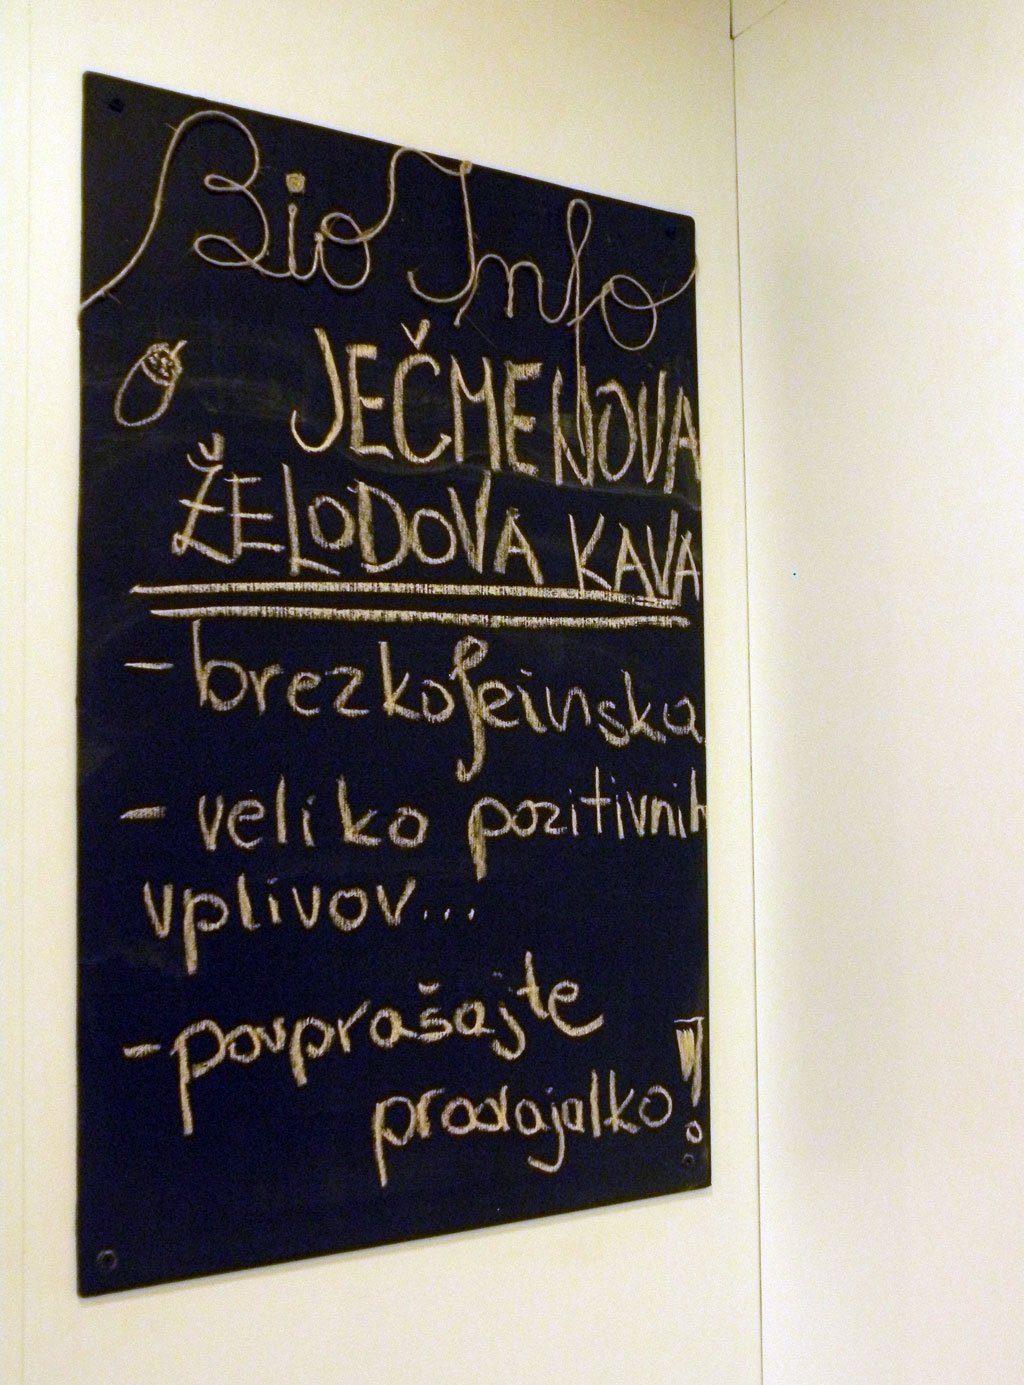 Bio Info
JEČMENOVA
ŽELODOVA KAVA
- brezkofeinska
- veliko pozitivnih
vplivov...
- povprašajte
prodajalko!